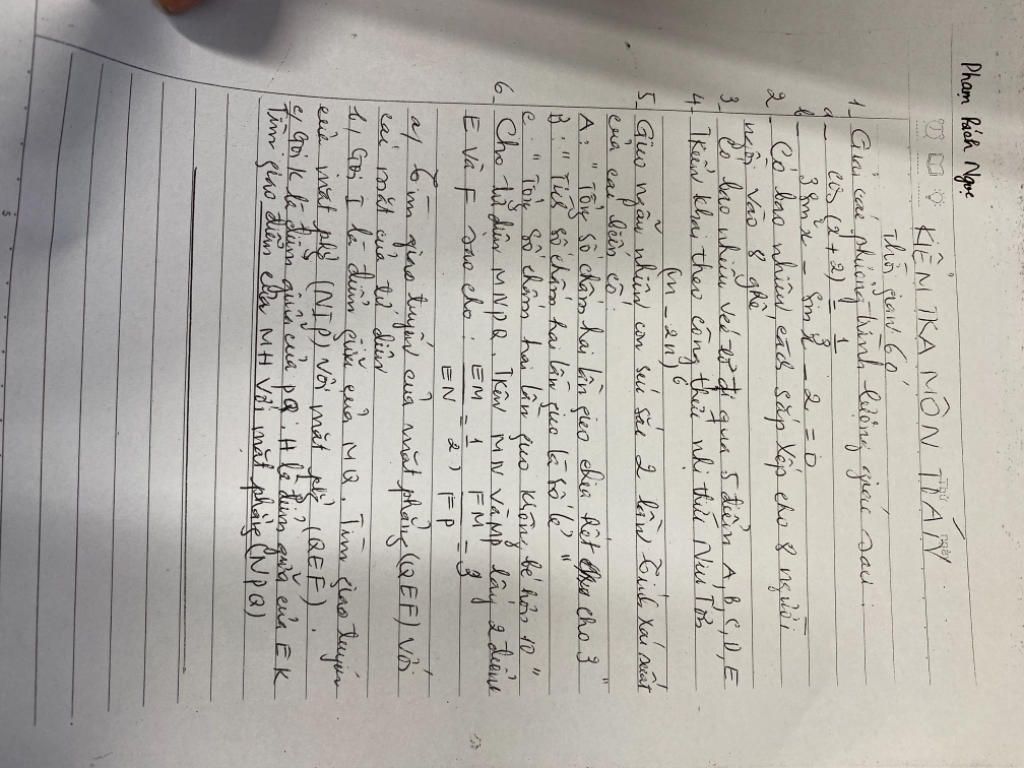 Phạm Bách Ngọc
THỨ
NGÀY
KIỂM TRA MÔN TOÁN
Thời gian 60
1- Giải các phương trình lượng giác sau:
a- cos (x + 2) = 1/2
b- 3sin²x - sin x - 2 = 0
2- Có bao nhiêu cách sắp xếp cho 8 người
ngồi vào 8 ghế
3 Có bao nhiêu vé đi qua 5 điểm A, B, C, D, E
4- Triển khai theo công thức nhị thức Niu Tơn
(m - 2n)⁶
5- Gieo ngẫu nhiên con súc sắc 2 lần Tính xác suất
của các biến cố:
A: "Tổng số chấm hai lần gieo chia hết cho 3"
B: "Tích số chấm hai lần gieo là số lẻ"
C: "Tổng số chấm hai lần gieo không bé hơn 10"
6- Cho tứ diện MNPQ. Trên MN và MP lấy 2 điểm
E và F sao cho: EM/EN = 1/2, FM/FP = 3
a/ Tìm giao tuyến của mặt phẳng (QEF) với
các mặt của tứ diện
b/ Gọi I là điểm của MQ. Tìm giao tuyến
của mặt phẳng (NIP) với mặt phẳng (QEF).
c/ Gọi K là điểm giữa của PQ. H là điểm giữa của EK
Tìm giao điểm của MH với mặt phẳng (NPQ)